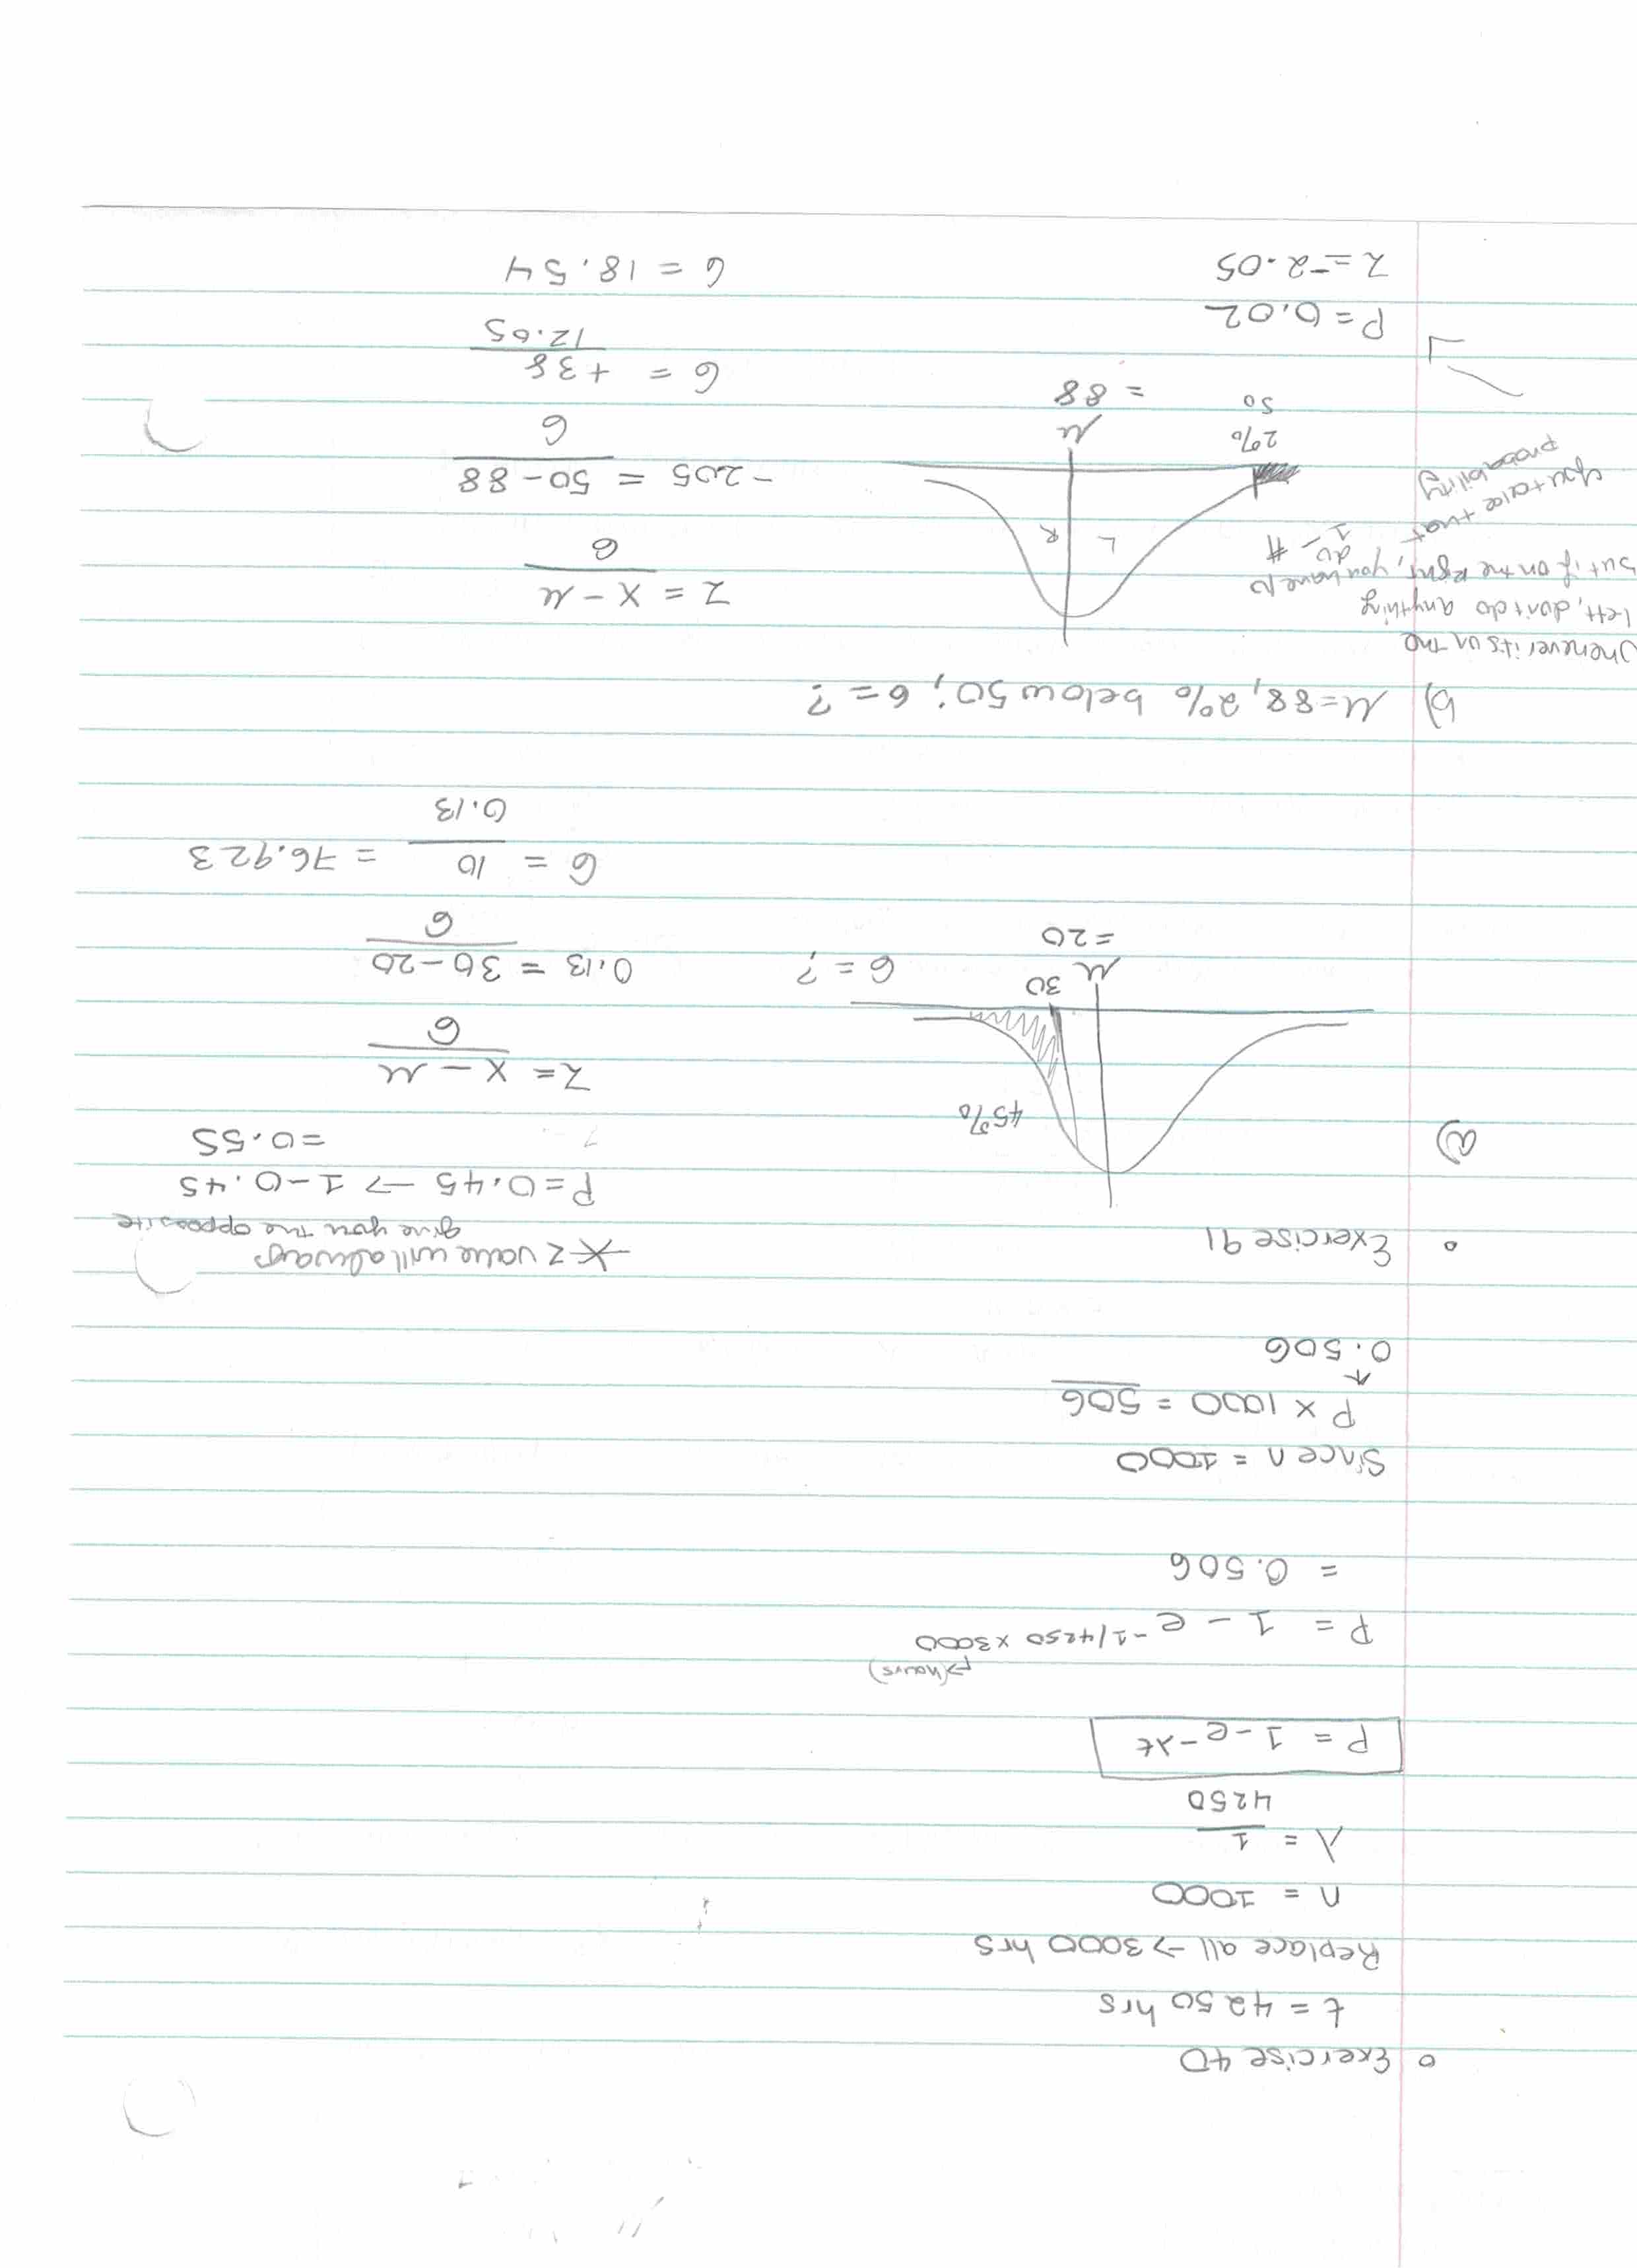 Exercise 40
t = 4250 hrs
Replace all → 3000 hrs
n = 1000
λ = 1
4250
P = 1 - e -λt
→(hours)
P = 1 - e -1/4250 × 3000
= 0.506
Since n = 1000
P × 1000 = 506
↑
0.506
Exercise 91
* Z value will always
give you the opposite
P = 0.45 → 1 - 0.45
= 0.55
a)
45%
30
μ
= 20
6 = ?
Z = x - μ
6
0.13 = 30 - 20
6
6 = 10 = 76.923
0.13
b) μ = 88, 2% below 50, 6 = ?
Whenever its on the
left, don't do anything
but if on the right, you have to
do 1 - #
you take that
probability
L R
2%
50
μ
= 88
P = 0.02
Z = -2.05
Z = x - μ
6
-2.05 = 50 - 88
6
6 = +38
12.05
6 = 18.54